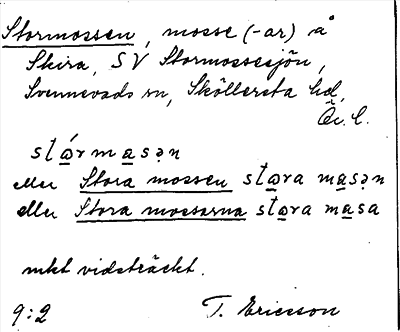 Stormossen, mosse (-ar) å
Skira, SV Stormossesjön,
Svennevads sn, Sköllersta hd,
Ör. l.
stårmasən
eller Stora mossen stara masən
eller Stora mossarna stara masa
mkt vidsträckt.
9:2 T. Ericsson